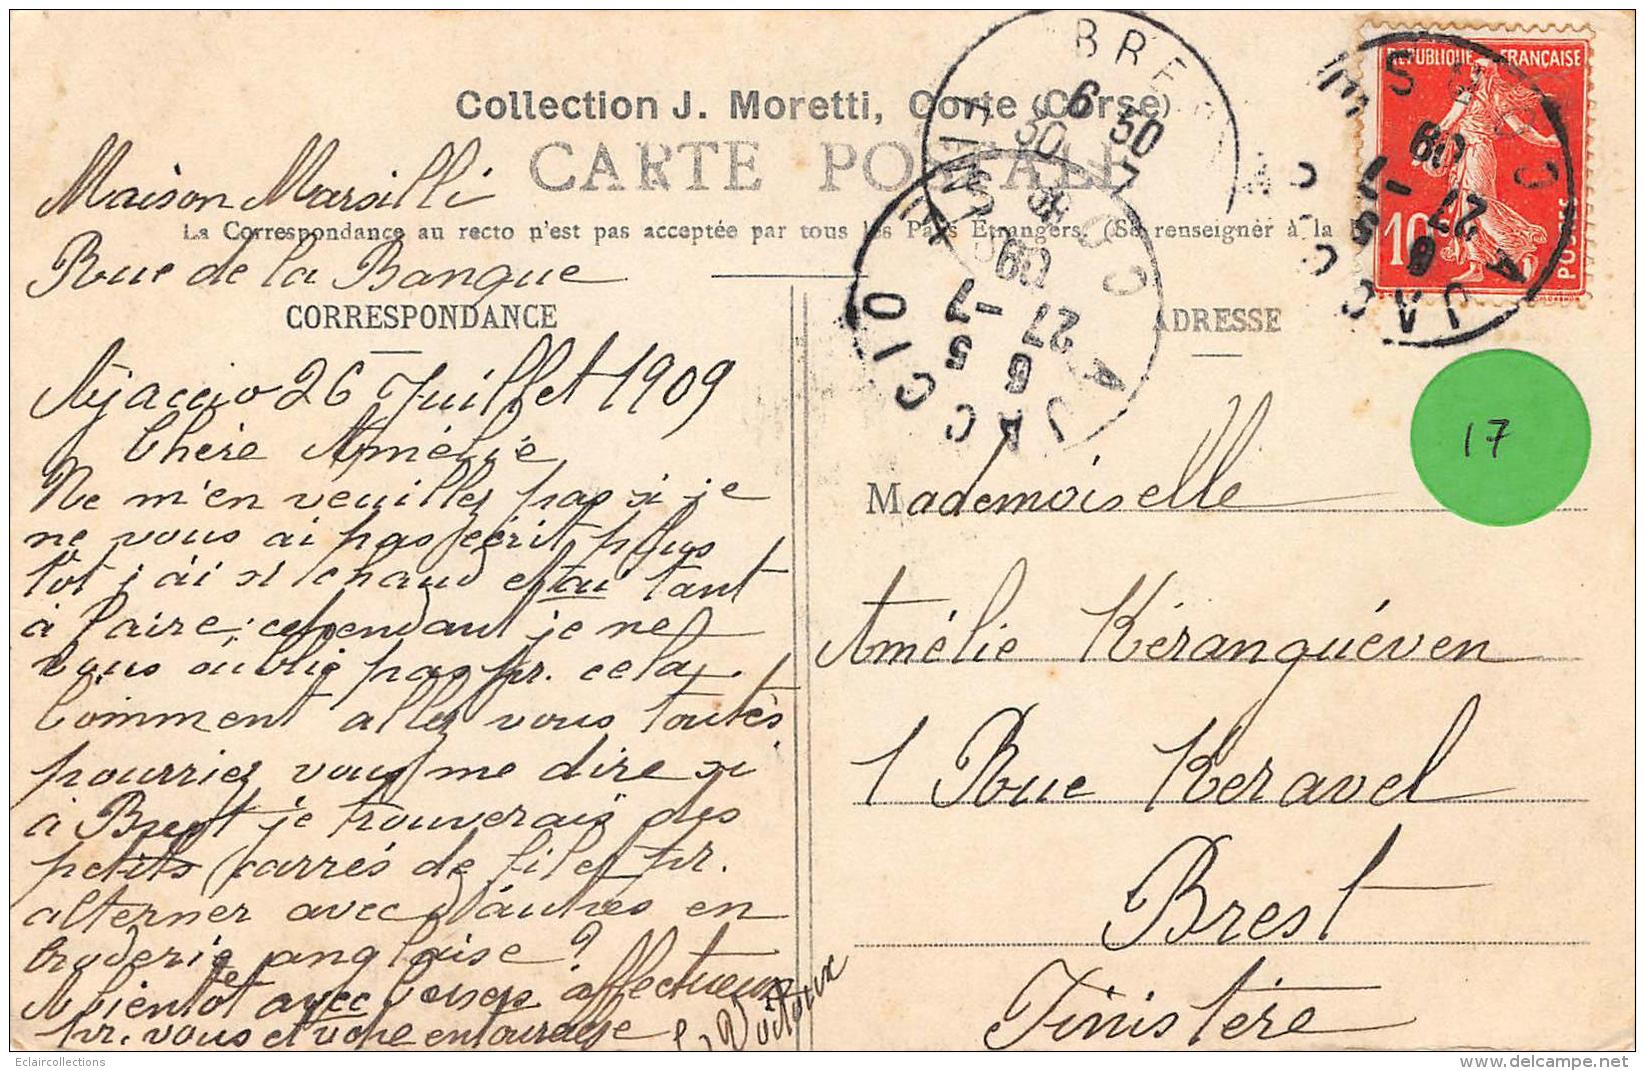 Collection J. Moretti, Corte (Corse)
CARTE POSTALE
Maison Marsilli
La Correspondance au recto n'est pas acceptée par tous les Pays Etrangers. (Se renseigner à la
Rue de la Banque
CORRESPONDANCE
Ajaccio 26 Juillet 1909
Chère Amélie
Ne m'en veuillez pas si je
ne vous ai pas écrit plus
tôt j'ai si chaud et ai tant
à faire; cependant je ne
vous oublie pas pr. cela.
Comment allez vous toutes
pourriez vous me dire si
à Brest je trouverais des
petits carrés de filet pr.
alterner avec d'autres en
broderie anglaise?
A bientôt avec baisers affectueux
pr. vous et votre entourage
ADRESSE
Mademoiselle
Amélie Kéranguéven
1 Rue Keravel
Brest
Finistère
REPUBLIQUE FRANÇAISE
10
POSTES
BREST
FINISTERE
6 30
30 7
09
AJACCIO
CORSE
6 5
27 -7
09
AJACCIO
CORSE
6 5
27 -7
09
17
Eclaircollections
delcampe.net